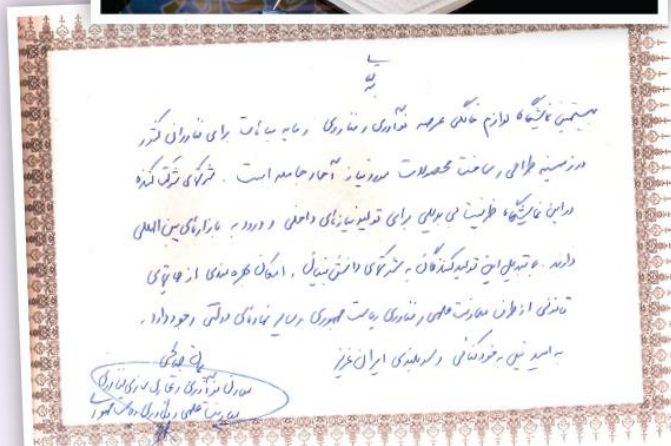 بیستمین نمایشگاه لوازم خانگی عرصه نوآوری و فناوری و مایه مباهات برای فناوران کشور
در زمینه طراحی و ساخت محصولات مورد نیاز آحاد جامعه است. شرکتهای شرکت کننده
در این نمایشگاه ظرفیت بی بدیلی برای تولید نیازهای داخلی و ورود به بازارهای بین المللی
دارند. با تبدیل این تولید کنندگان به شرکتهای دانش بنیان، امکان بهره مندی از حمایتهای
قانونی از طرف معاونت علمی و فناوری ریاست جمهوری و سایر نهادهای دولتی وجود دارد.
به امید نیل به خودکفائی و سربلندی ایران عزیز
معاون نوآوری و تجاری سازی فناوری
معاونت علمی و فناوری ریاست جمهوری